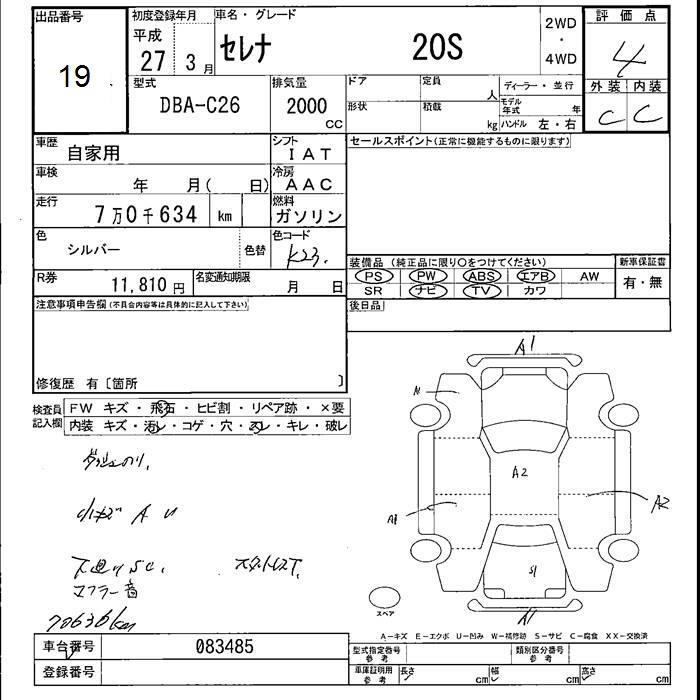 出品番号
19
初度登録年月
平成
27 3月
車名・グレード
セレナ 20S
2WD
・
4WD
評価点
4
外装 内装
C C
型式
DBA-C26
排気量
2000
CC
ドア
定員
人
形状
積載
kg
ディーラー・並行
モデル年式 年
ハンドル 左・右
車歴
自家用
シフト
IAT
セールスポイント(正常に機能するものに限ります)
車検
年 月( 日)
冷房
AAC
走行
7万0千634 km
燃料
ガソリン
色
シルバー
色替
色コード
K23.
装備品(純正品に限り○をつけてください)
PS PW ABS エアB AW
SR ナビ TV カワ
新車保証書
有・無
R券
11,810円
名変通知期限
月 日
後日品
注意事項申告欄(不具合内容等は具体的に記入して下さい)
修復歴 有〔箇所 〕
検査員記入欄
FW キズ・飛石・ヒビ割・リペア跡・×要
内装 キズ・汚レ・コゲ・穴・スレ・キレ・破レ
小キズ A U
下廻りSC.
マフラー音
70636km
A1
A2
A2
A1
S1
A1
スペア
A-キズ E-エクボ U-凹み W-補修跡 S-サビ C-腐食 XX-交換済
車台番号
083485
登録番号
型式指定番号
参考
類別区分番号
参考
車庫証明用
参考
長さ cm
幅 cm
高さ cm